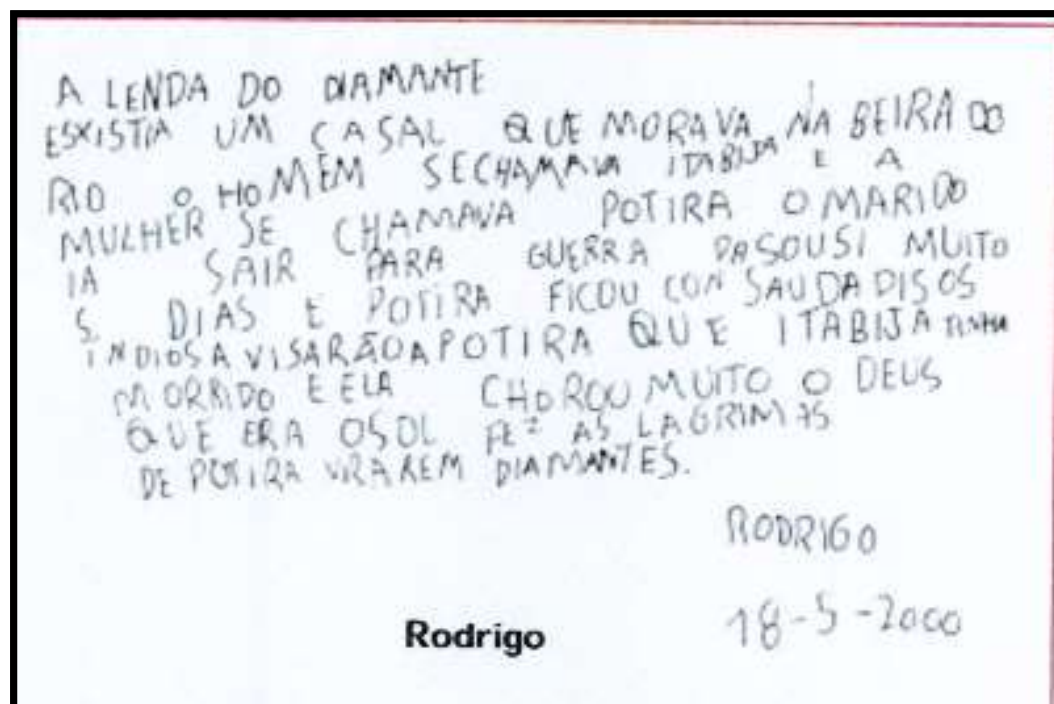 A LENDA DO DIAMANTE
ESXISTIA UM CASAL QUE MORAVA NA BEIRA DO
RIO O HOMEM SECHAMAVA ITABIJA E A
MULHER SE CHAMAVA POTIRA O MARIDO
IA SAIR PARA GUERRA PASOUSI MUITO
S DIAS E POTIRA FICOU CON SAUDADIS OS
INDIOS AVISARÃO A POTIRA QUE ITABIJA TINHA
MORRIDO E ELA CHOROU MUITO O DEUS
QUE ERA OSOL FEZ AS LAGRIMAS
DE POTIRA VIRAREM DIAMANTES.
RODRIGO
18-5-2000
Rodrigo